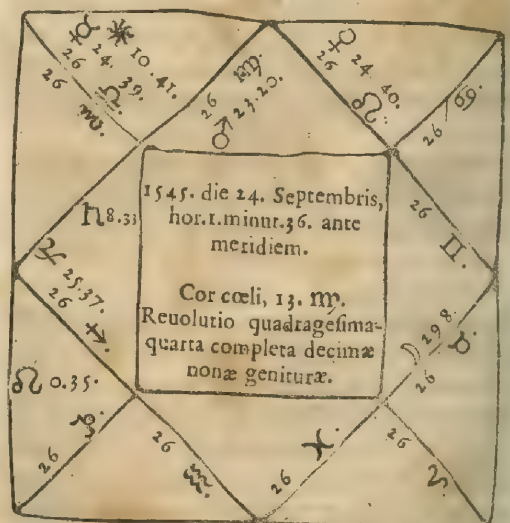 ☿ 24. 39.
☀ 10. 41.
26 ♎.
26 ♏.
26 ♍.
♂ 23. 20.
♀ 24. 40.
26 ♌.
26 ♋.
♄ 8.33
26
♊.
1545. die 24. Septembris,
hor.1.minut.36. ante
meridiem.
Cor cœli, 13. ♍.
Reuolutio quadrageſima-
quarta completa decimæ
nonæ genituræ.
♃ 25.37.
26 ♐.
☽ 29 8.
26 ♉.
☊ 0.35.
26 ♑.
26 ♒.
26 ♓
26 ♈.